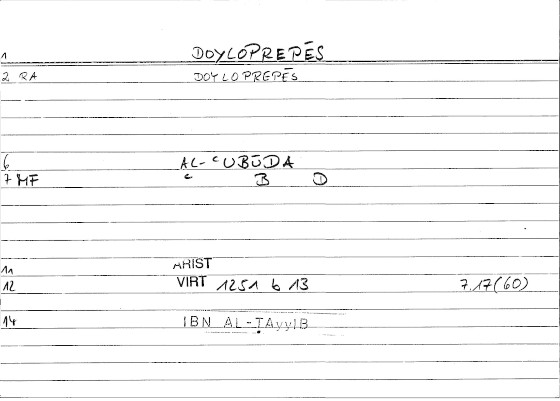 1 DOYLOPREPĒS
2 RA DOYLOPREPĒS
6 AL-ʿUBŪDA
7 MF ʿ B D
11 ARIST
12 VIRT 1251 b 13 7.17(60)
14 IBN AL-ṬAyyIB